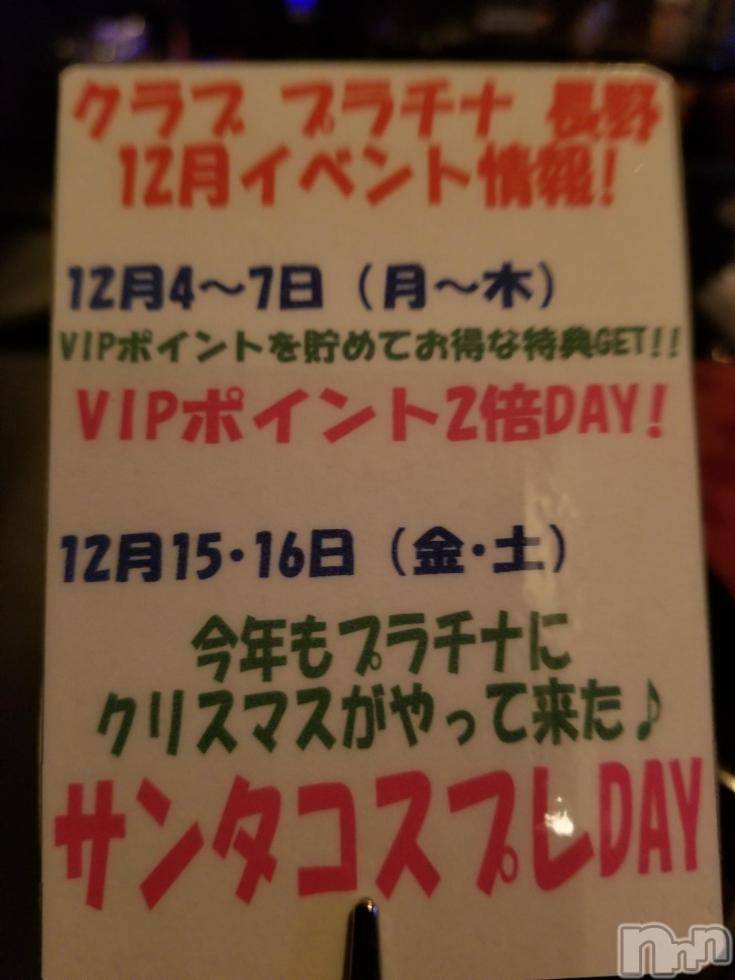 クラブ プラチナ 長野
12月イベント情報!
12月4～7日（月～木）
VIPポイントを貯めてお得な特典GET!!
VIPポイント2倍DAY!
12月15・16日（金・土）
今年もプラチナに
クリスマスがやって来た♪
サンタコスプレDAY
nmn